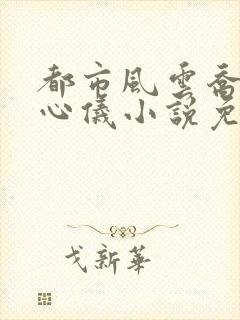 都市風雲喬
心儀小說免
戈新華